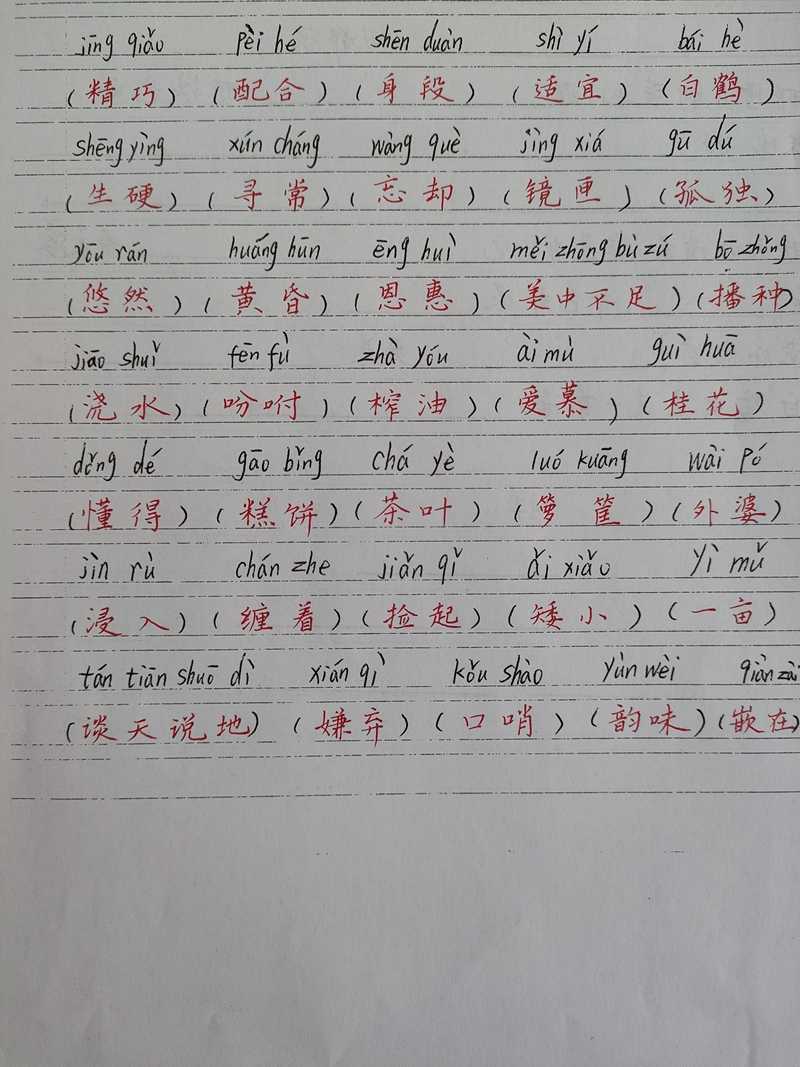 jīng qiǎo pèi hé shēn duàn shì yí bái hè
(精巧) (配合) (身段) (适宜) (白鹤)
shēng yìng xún cháng wàng què jìng xiá gū dú
(生硬) (寻常) (忘却) (镜匣) (孤独)
yōu rán huáng hūn ēng huì měi zhōng bù zú bō zhǒng
(悠然) (黄昏) (恩惠) (美中不足) (播种)
jiāo shuǐ fēn fù zhà yóu ài mù guì huā
(浇水) (吩咐) (榨油) (爱慕) (桂花)
dǒng dé gāo bǐng chá yè luó kuāng wài pó
(懂得) (糕饼) (茶叶) (箩筐) (外婆)
jìn rù chán zhe jiǎn qǐ ǎi xiǎo yì mǔ
(浸入) (缠着) (捡起) (矮小) (一亩)
tán tiān shuō dì xián qì kǒu shào yùn wèi qiàn zài
(谈天说地) (嫌弃) (口哨) (韵味) (嵌在)